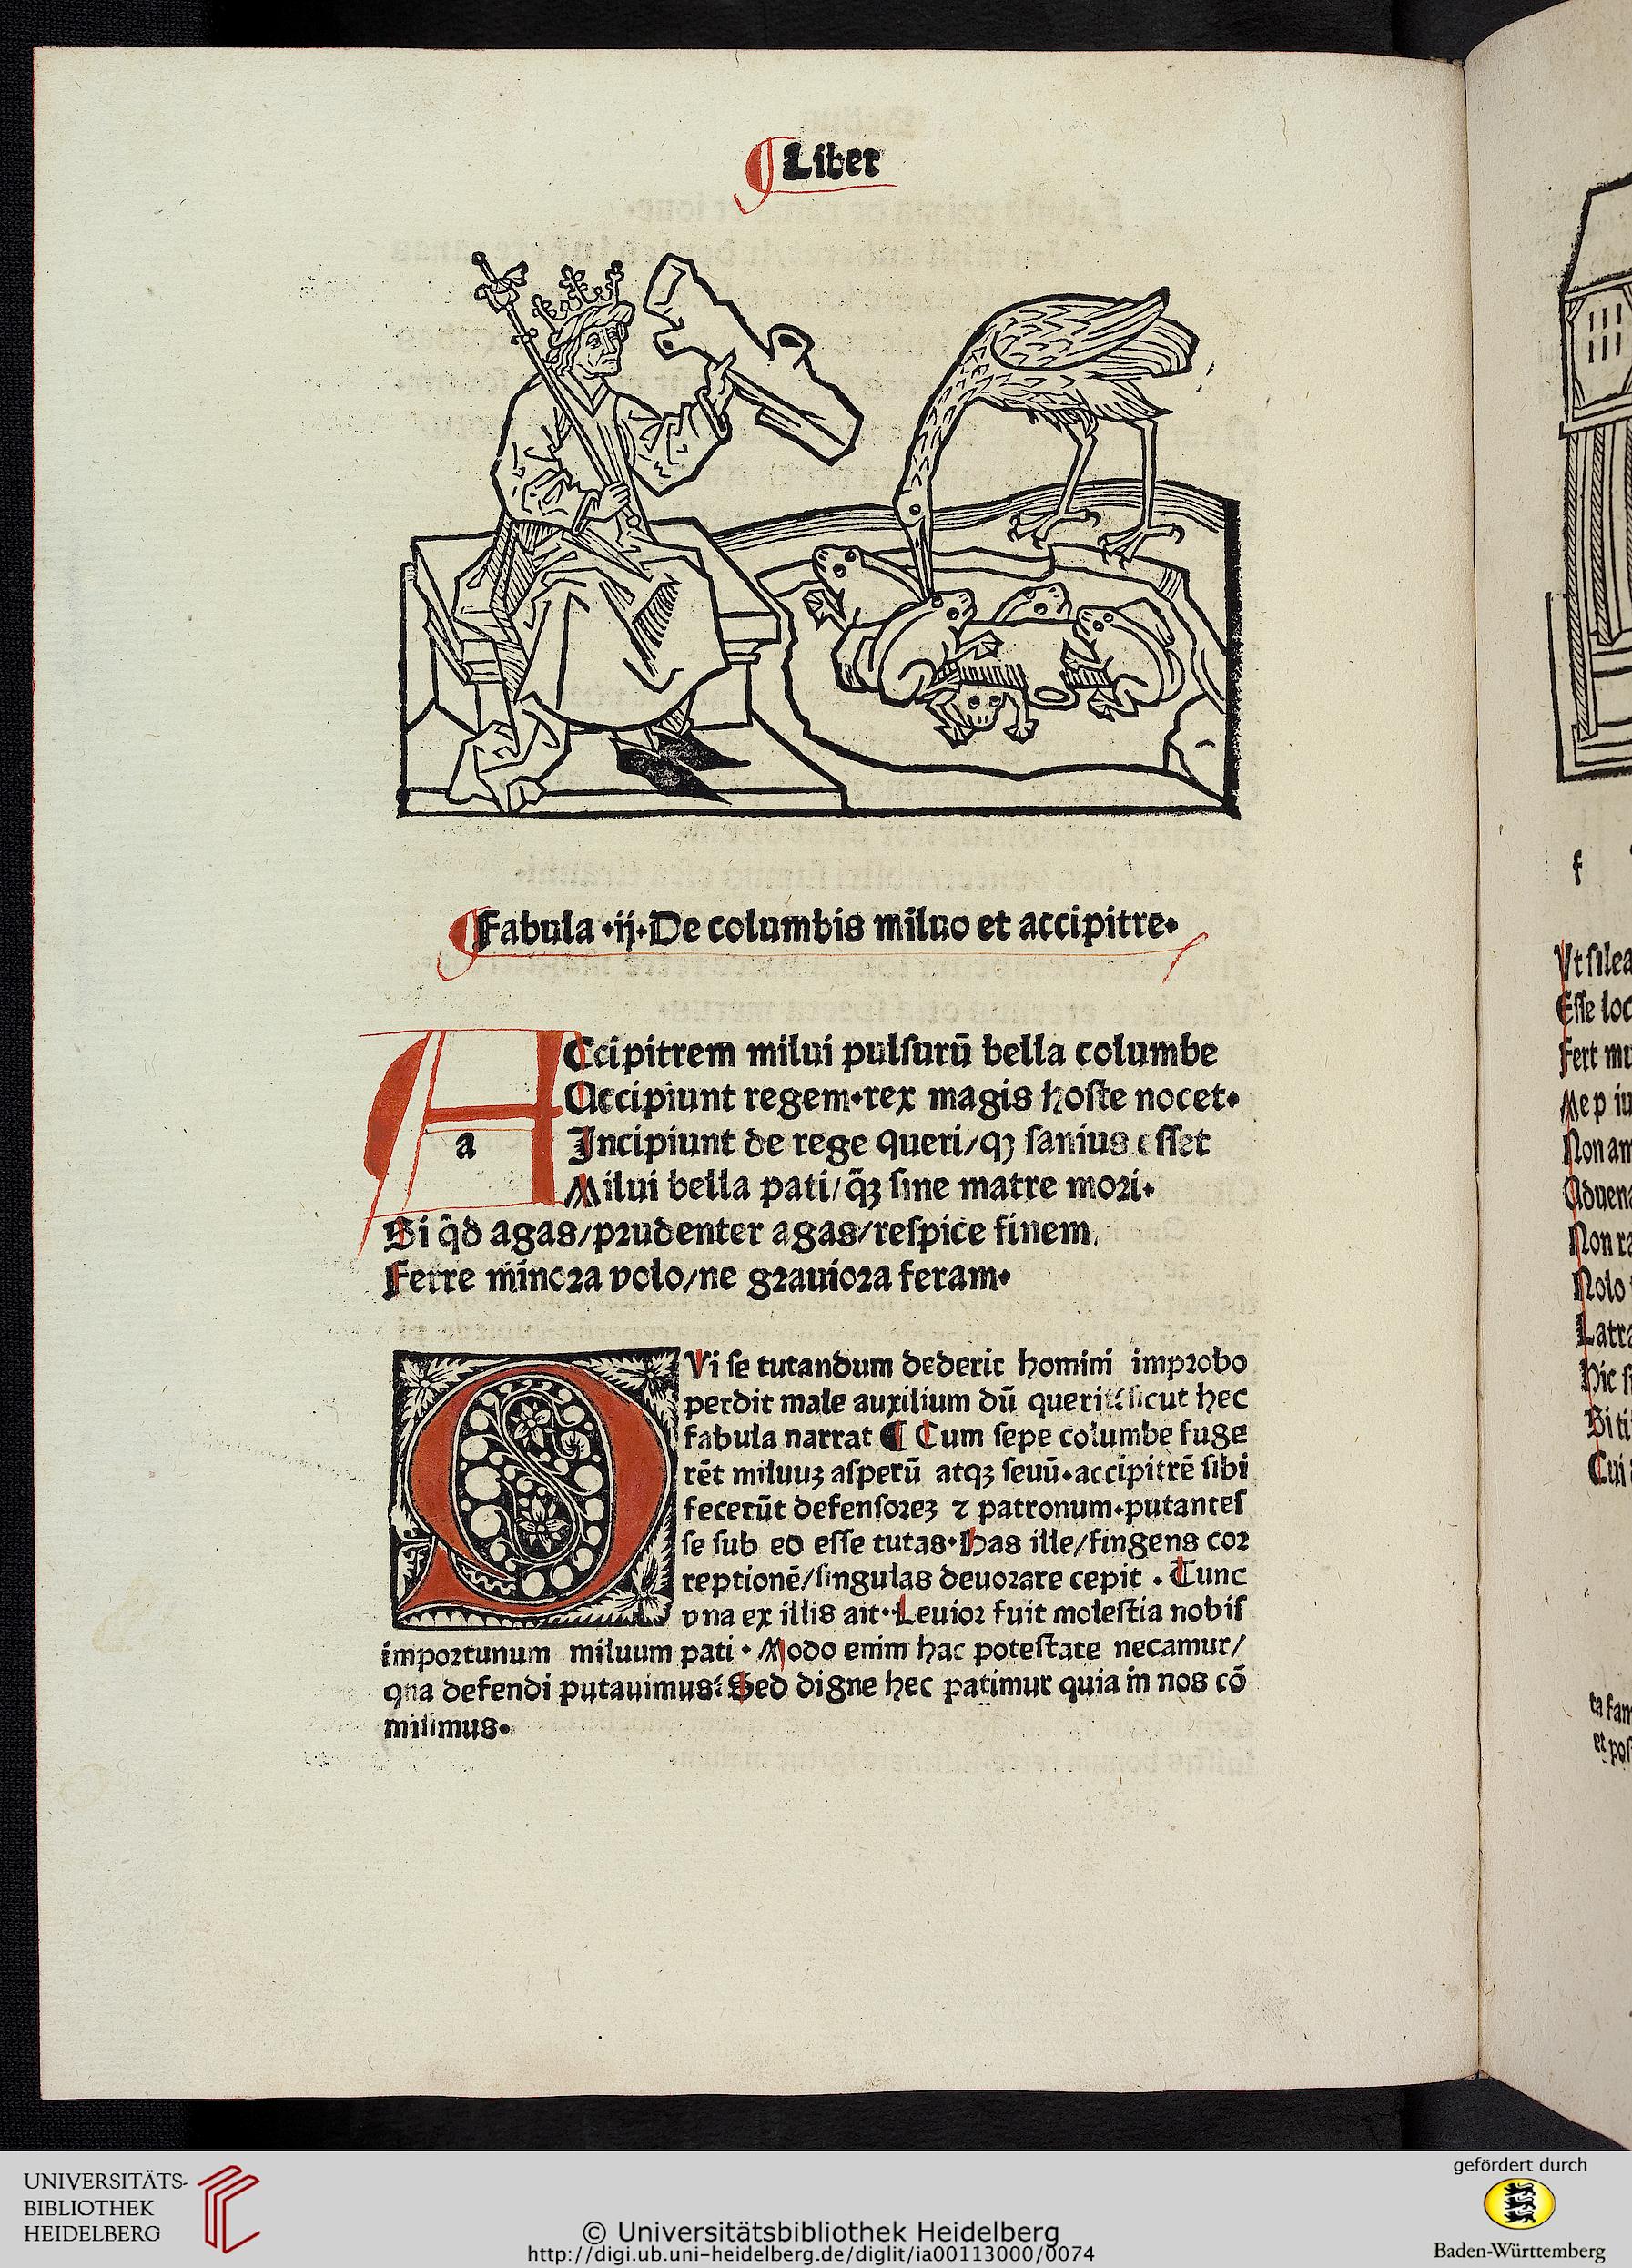 Liber
Fabula .ij. De columbis miluo et accipitre.
ACcipitrem milui pulsurū bella columbe
Accipiunt regem. rex magis hoste nocet.
a
Incipiunt de rege queri/ qꝫ sanius esset
Milui bella pati/ q̃ꝫ sine matre mori.
Si q̃d agas/ prudenter agas/ respice finem.
Ferre minora volo/ ne grauiora feram.
QVi se tutandum dederit homini improbo
perdit male auxilium dū querit: sicut hec
fabula narrat ¶ Cum sepe columbe fuge
rēt miluuꝫ asperū atqꝫ seuū. accipitrē sibi
fecerūt defensoreꝫ ⁊ patronum. putantes
se sub eo esse tutas. Has ille/ fingens cor
reptionē/ singulas deuorare cepit. Tunc
vna ex illis ait. Leuior fuit molestia nobis
importunum miluum pati. Modo enim hac potestate necamur/
qua defendi putauimus: Sed digne hec patimur quia in nos cō
misimus.
f
Vt silea
Esse loc
Fert mu
Me p iu
Non am
Aduena
Non ra
Nolo
Latra
Hic si
Si ti
Cui
ta fam
et pos
UNIVERSITÄTS-
BIBLIOTHEK
HEIDELBERG
© Universitätsbibliothek Heidelberg
http://digi.ub.uni-heidelberg.de/diglit/ia00113000/0074
gefördert durch
Baden-Württemberg